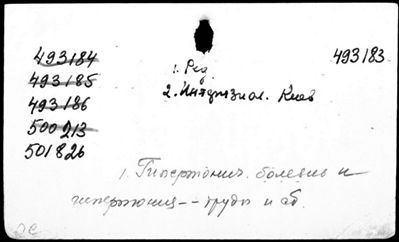 493184
493185
493186
500213
501826
493183
1. Ред.
2. Интфизиол. Киев
1. Гипертонич. болезнь и
гипертония -- труды и сб.